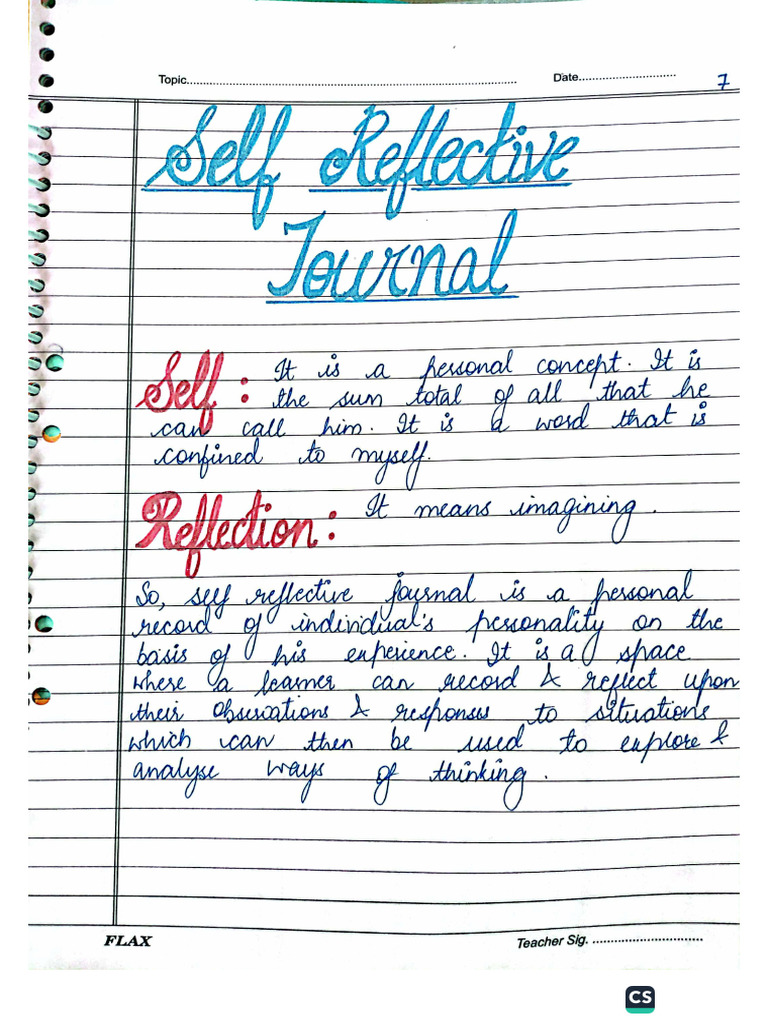 Topic.......... Date..........
7
Self Reflective
Journal
Self : It is a personal concept. It is
the sum total of all that he
can call him. It is a word that is
confined to myself.
Reflection : It means imagining.
So, self reflective journal is a personal
record of individual's personality on the
basis of his experience. It is a space
where a learner can record & reflect upon
their observations & responses to situations
which can then be used to explore &
analyse ways of thinking.
FLAX Teacher Sig. ..........
CS